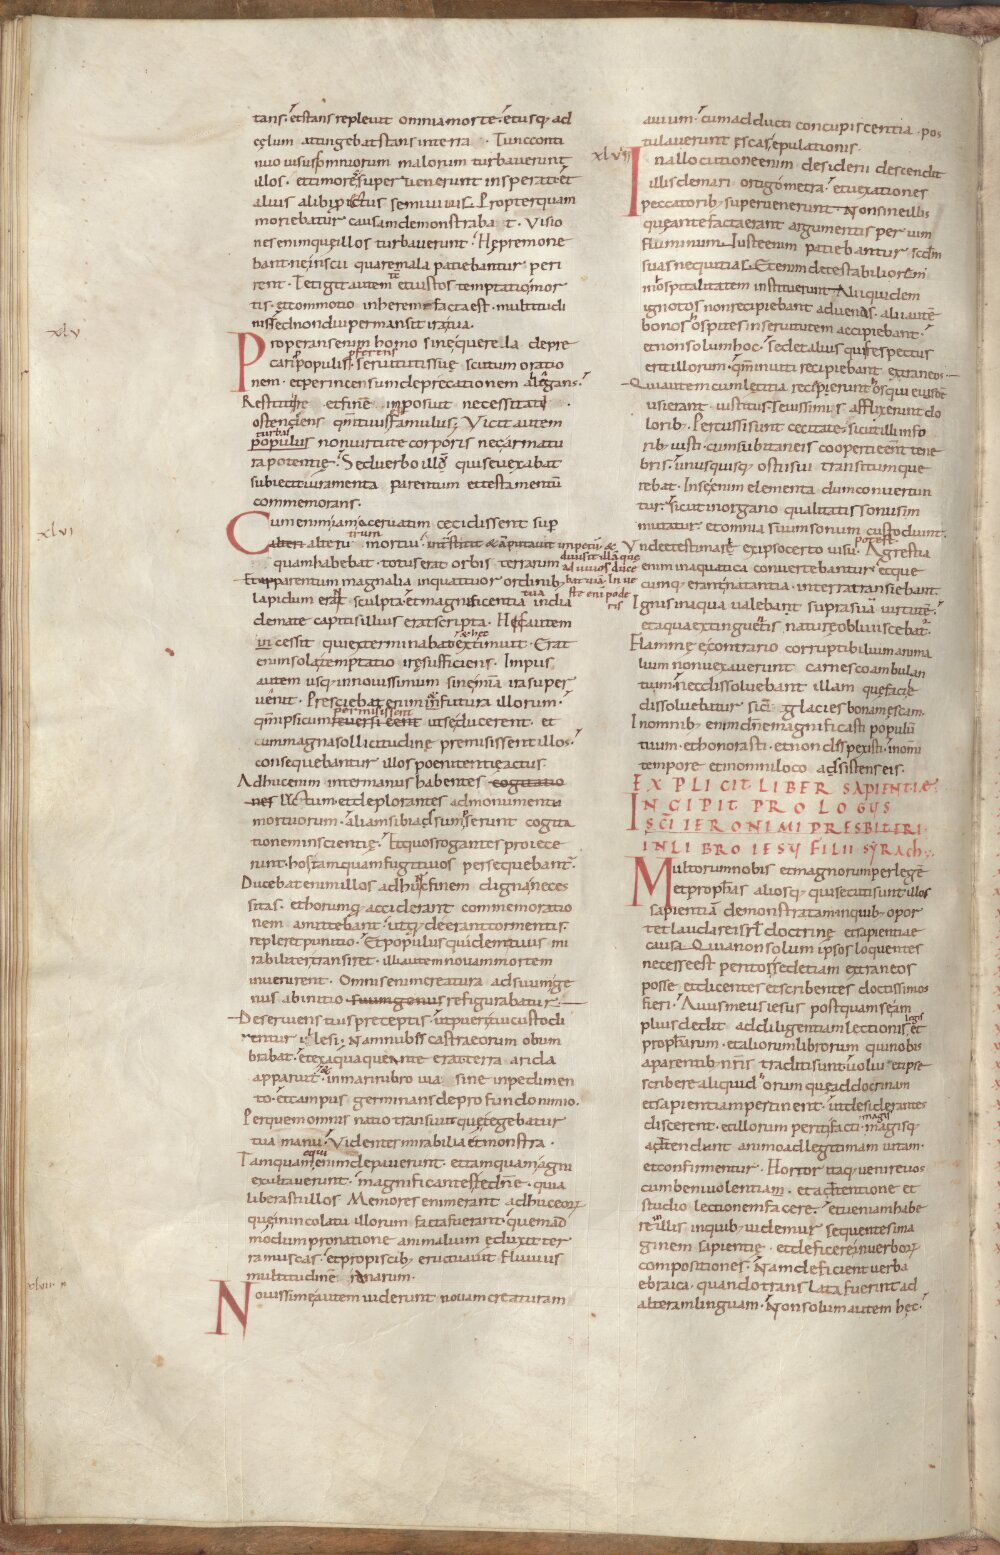 tans. et stans repleuit omnia morte. et usq; ad
cęlum attingebat stans in terra. Tunc conti
nuo uisus somniorum malorum turbauerunt
illos. et timores super uenerunt insperati. et
alius alibi proiectus semiuiuus. Propter quam
moriebatur causam demonstrabat. Visio
nes enim quę illos turbauerunt. Hę premone
bant ne inscii quare mala patiebantur peri
rent. Tetigit autem et iustos temptatio mor
tis. et commotio in heremo facta est multitudi
nis sed non diu permansit ira tua.
xlv
Properans enim homo sine querela depre
cari pro populis. proferens seruitutis suę scutum oratio
nem. et per incensum deprecationem alegans.
Restitit irę et finem imposuit necessitati
ostendens qm tuus est famulus. Vicit autem
turbas
populus non uirtute corporis nec armatu
ra potentię. Sed uerbo illum qui se uexabat
subiecit iuramenta parentum et testamentū
commemorans.
xlvi
Cum enim iam aceruatim cecidissent sup
alteri alterutrum mortui. interstitit & amputauit impetū &
diuisit illā que
ad uiuos duce
bat uiā. In ue
ste eni pode
ris
quam habebat. totus erat orbis terrarum
Et parentum magnalia in quattuor ordinib;
lapidum erant sculpta. et magnificentia tua in dia
demate capitis illius erat scripta. His autem
cessit qui exterminabat & hęc extimuit. Erat
enim sola temptatio irę sufficiens. Impiis
autem usq; in nouissimum sine mīa ira super
uenit. Presciebat enim et futura illorum.
qm ipsi cum permisissent reuersi eēnt ut se ducerent. et
cum magna sollicitudine premisissent illos.
consequebantur illos poenitentię actus.
Adhuc enim inter manus habentes cogitatio
nes luctum. et deplorantes ad monumenta
mortuorum. aliam sibi adsumserunt cogita
tionem inscientię. Et quos rogantes proiece
runt. hos tamquam fugitiuos persequebant.
Ducebat enim illos ad hunc finem digna neces
sitas. et horum quę acciderant commemoratio
nem amittebant. ut quę deerant tormentis.
repleret punitio. Et populus quidem tuus mi
rabiliter transiret. illi autem nouam mortem
inuenirent. Omnis enim creatura ad suum ge
nus ab initio suum genus refigurabatur.
Deseruiens tuis preceptis. ut pueri tui custodi
rentur illesi. Nam nubs castra eorum obum
brabat. et ex aqua quę ante erat terra arida
apparuit. & in mari rubro uia sine inpedimen
to. et campus germinans de profundo nimio.
Per quem omnis natio transiuit quę tegebatur
tua manu. Videntes mirabilia et monstra.
Tamquam equi enim depauerunt. et tamquam agni
exultauerunt. magnificantes te dnē. quia
liberasti illos Memores enim erant adhuc eorum
quę in incolatu illorum facta fuerant. quemad
modum pro natione animalium eduxit ter
ra muscas. et pro piscib; eructauit fluuius
multitudinē ranarum.
Nouissime autem uiderunt nouam creaturam
auium. cum adducti concupiscentia. pos
tulauerunt ęscas epulationis.
In allocutione enim desiderii descendit
illis de mari ortigometra. et uexationes
peccatorib; superuenerunt. Non sine illis
quę ante facta erant argumentis per uim
fluminum. Iuste enim patiebantur scdm
suas nequitias. Etenim detestabiliorem
inhospitalitatem instituerunt. Alii quidem
ignotos non recipiebant aduenas. alii autē
bonos ospites in seruitutem accipiebant.
et non solum hoc. sed et alius quis respectus
erit illorum. qm inuiti recipiebant extraneos.
Qui autem cum lętitia recęperunt hos qui eisdē
usi erant iustitiis. seuissimis afflixerunt do
lorib; Percussi sunt cecitate. sicut illi in fo
rib; iusti. cum subitaneis cooperti eēnt tene
bris. unusquisq; ostii sui transitum que
rebat. In se enim elementa dum conuertun
tur. sicut in organo qualitatis sonus im
mutatur. et omnia suum sonum custodiunt.
Vnde estimari ex ipso certo uisu potest. Agrestia
enim in aquatica conuertebantur. et que
cumq; erant natantia. in terra transiebant.
Ignis in aqua ualebant supra suā uirtutē.
et aqua extinguentis naturę obliuiscebat.
Flammę e contrario corruptibilium anima
lium non uexauerunt carnes coambulan
tium. nec dissoluebant illam quę facile
dissoluebatur sicut glacies bonam ęscam.
In omnib; enim dnē magnificasti populū
tuum. et honorasti. et non despexisti. in omni
tempore et in omni loco adsistens eis.
EXPLICIT LIBER SAPIENTIAE
INCIPIT PROLOGUS
SCI IERONIMI PRESBITERI
IN LIBRO IESU FILII SYRACH.
Multorum nobis et magnorum per legē
et prophas aliosq; qui secuti sunt illos
sapientiā demonstratam. in quib; opor
tet laudare isrl doctrinę et sapientiae
causa. Quia non solum ipsos loquentes
necesse est peritos. sed etiam extraneos
posse et dicentes et scribentes doctissimos
fieri. Auus meus iesus postquam se am
plius dedit ad diligentiam lectionis legis et
prophārum. et aliorum librorum qui nobis
a parentib; nr̄is traditi sunt. uoluit et ipse
scribere aliquid horum quę ad doctrinam
et sapientiam pertinent. ut desiderantes
discere. et illorum periti facti. magis magisq;
adtendant animo ad legitimam uitam.
et confirmentur. Hortor itaq; uenire uos
cum beniuolentiam. et adtentione et
studio lectionem facere. et ueniam habe
re in illis. in quib; uidemur sequentes ima
ginem sapientię. et deficere in uerborum
compositiones. Nam deficient uerba
ebraica. quando translata fuerint ad
alteram linguam. Non solum autem hęc.